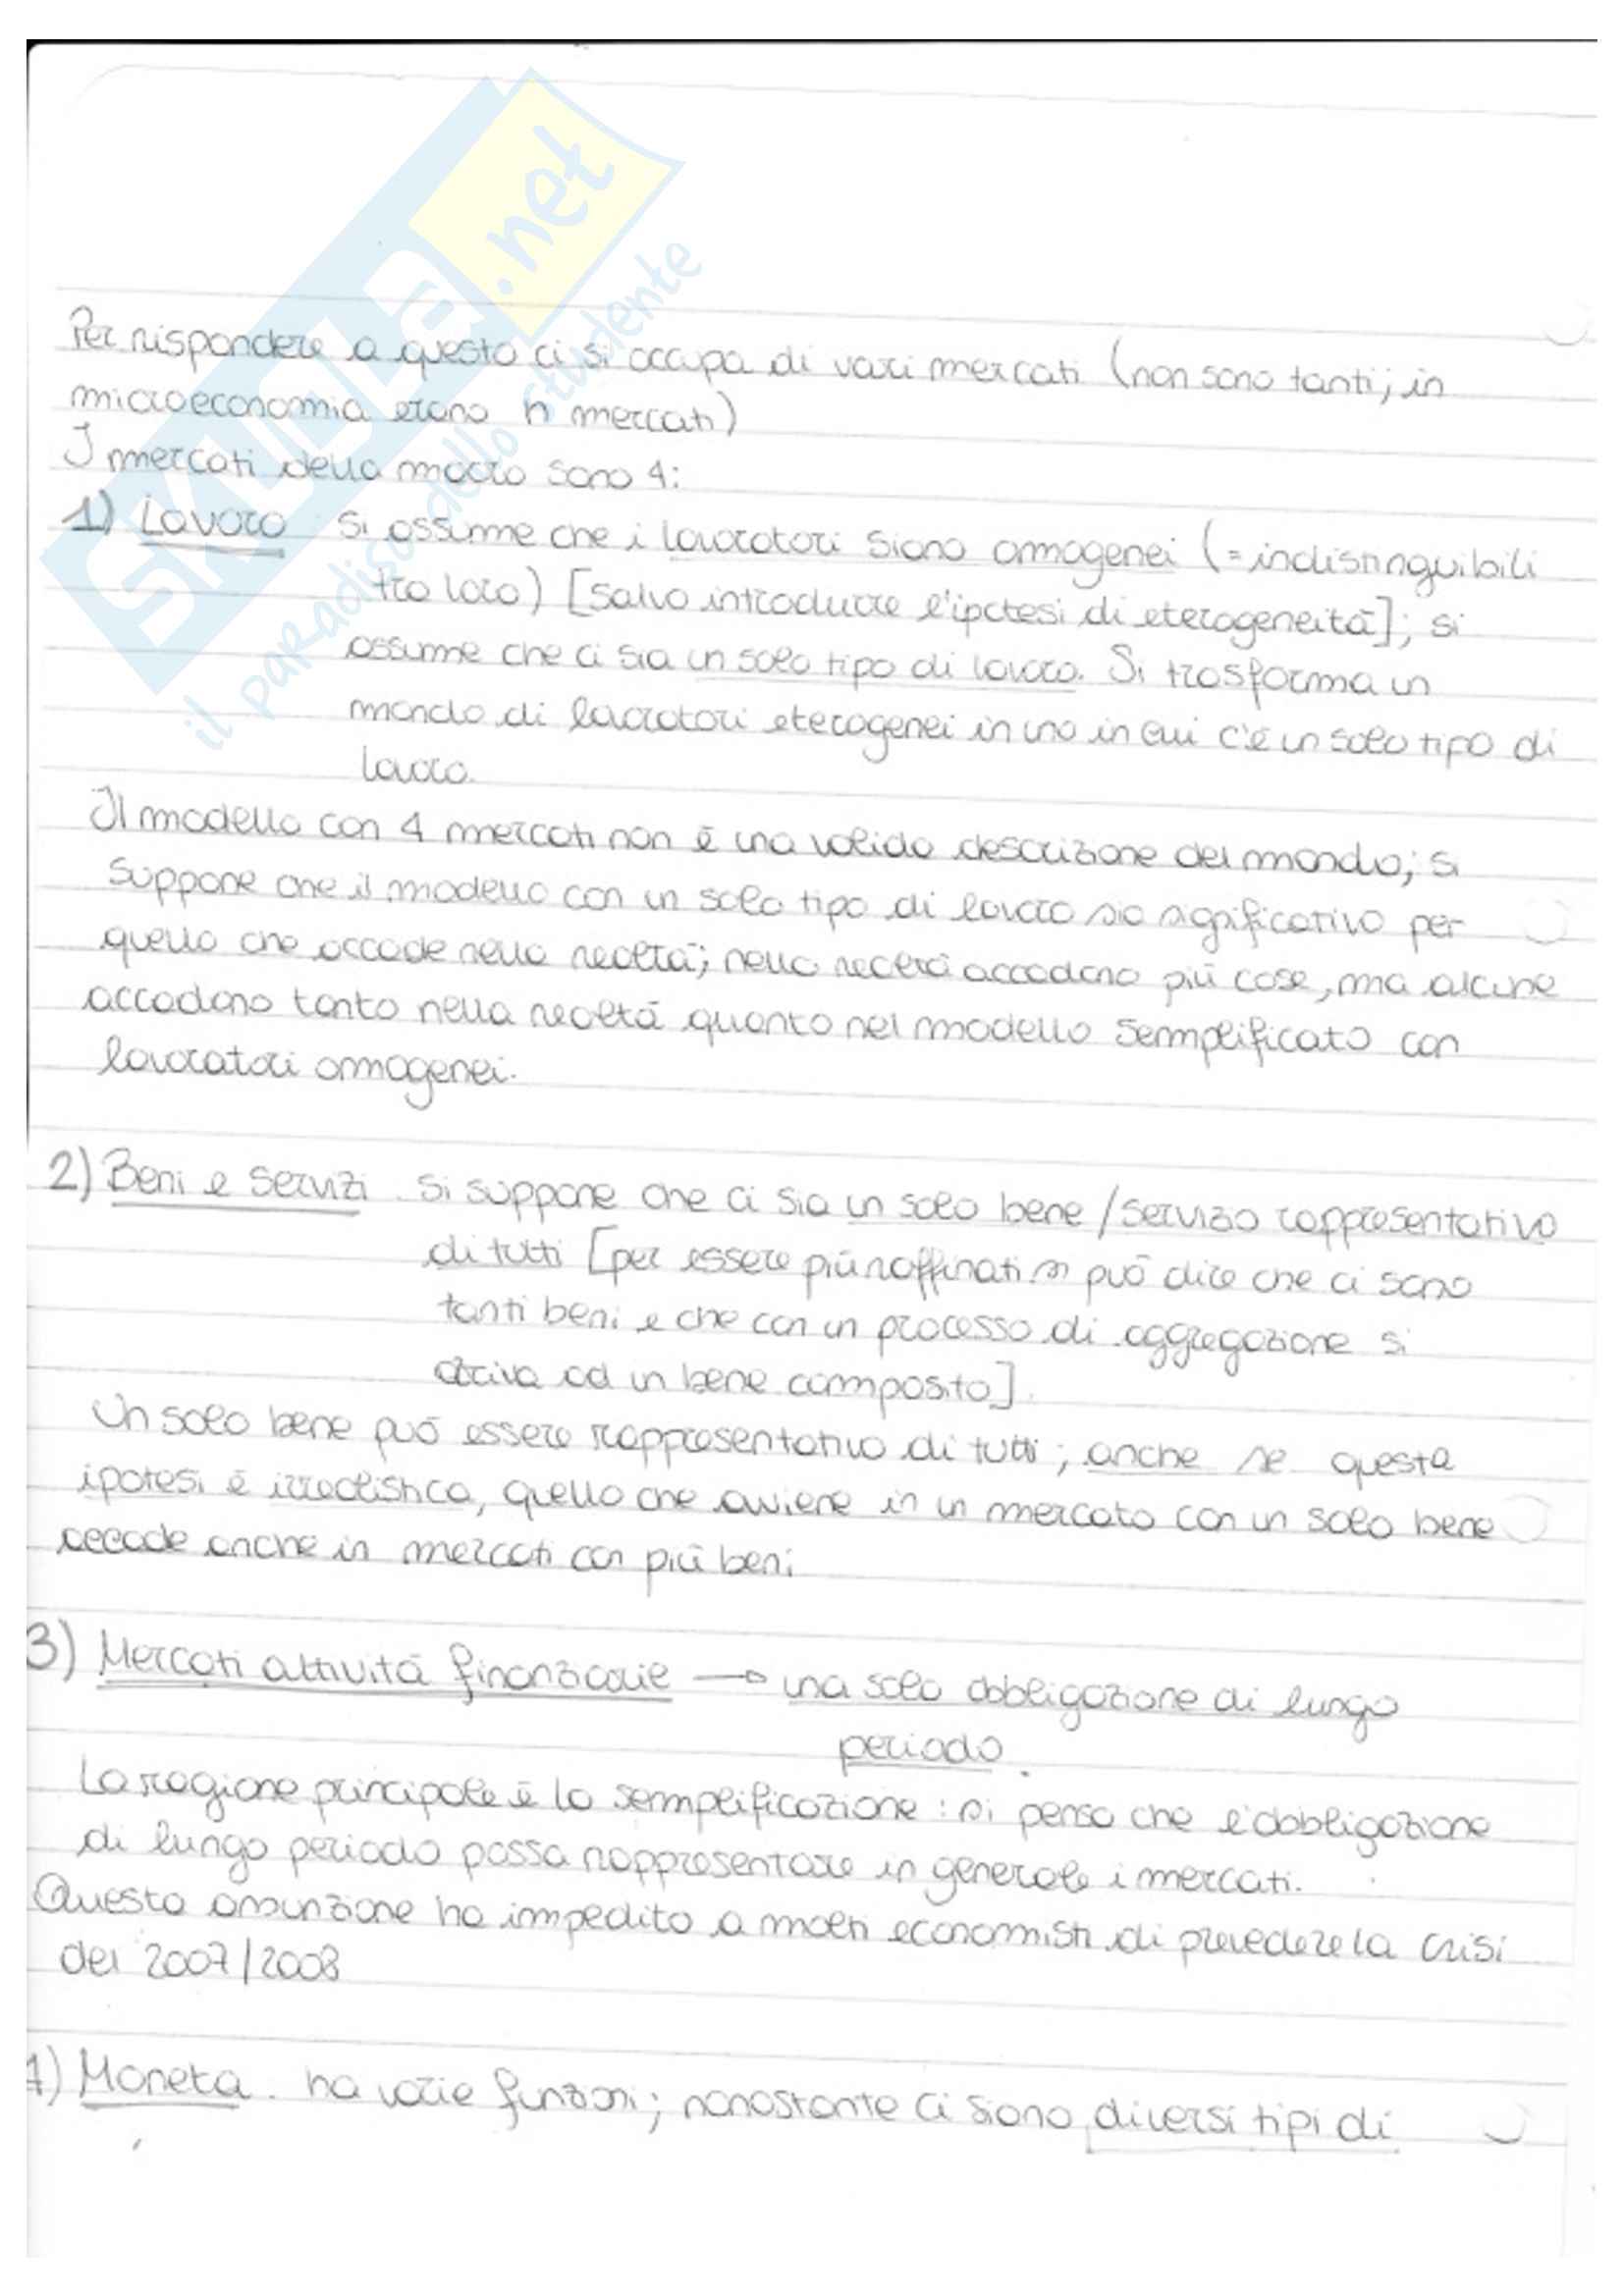 SKUOLA.net
il paradiso dello studente
Per rispondere a questo ci si occupa di vari mercati (non sono tanti; in
microeconomia erano n mercati)
I mercati della macro sono 4:
1) Lavoro Si assume che i lavoratori siano omogenei (= indistinguibili
tra loro) [salvo introdurre l'ipotesi di eterogeneità]; si
assume che ci sia un solo tipo di lavoro. Si trasforma un
mondo di lavoratori eterogenei in uno in cui c'è un solo tipo di
lavoro.
Il modello con 4 mercati non è una valida descrizione del mondo; si
suppone che il modello con un solo tipo di lavoro sia significativo per
quello che accade nella realtà; nella realtà accadono più cose, ma alcune
accadono tanto nella realtà quanto nel modello semplificato con
lavoratori omogenei.
2) Beni e servizi. Si suppone che ci sia un solo bene / servizio rappresentativo
di tutti [per essere più raffinati si può dire che ci sono
tanti beni e che con un processo di aggregazione si
arriva ad un bene composito].
Un solo bene può essere rappresentativo di tutti; anche se questa
ipotesi è irrealistica, quello che avviene in un mercato con un solo bene
accade anche in mercati con più beni
3) Mercati attività finanziarie → una sola obbligazione di lungo
periodo.
La ragione principale è la semplificazione: si pensa che l'obbligazione
di lungo periodo possa rappresentare in generale i mercati.
Questa assunzione ha impedito a molti economisti di prevedere la crisi
del 2007/2008
4) Moneta. ha varie funzioni; nonostante ci siano diversi tipi di